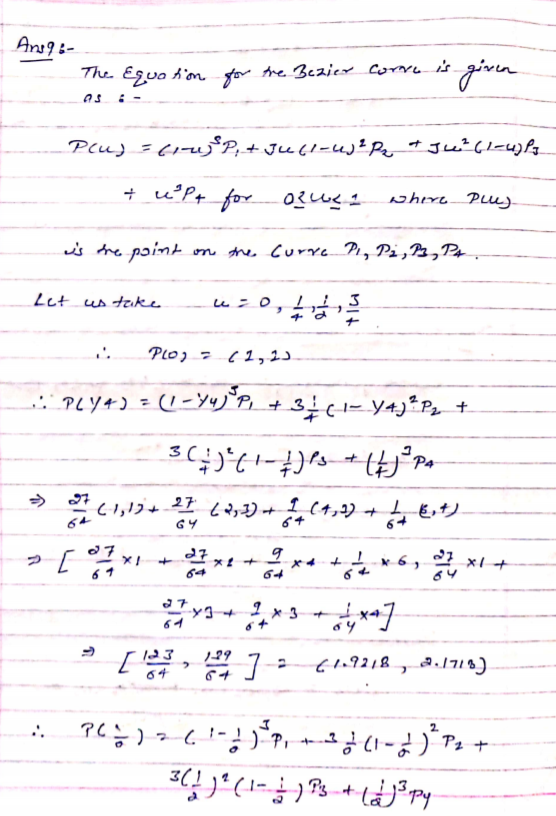 Ans9:-
The Equation for the Bezier Curve is given
as :-
P(u) = (1-u)³P₁ + 3u(1-u)²P₂ + 3u²(1-u)P₃
+ u³P₄ for 0≤u≤1 where P(u)
is the point on the Curve P₁, P₂, P₃, P₄.
Let us take u = 0, 1/4, 1/2, 3/4
∴ P(0) = (1,1)
∴ P(1/4) = (1-1/4)³P₁ + 3 1/4 (1-1/4)²P₂ +
3(1/4)²(1-1/4)P₃ + (1/4)³P₄
⇒ 27/64 (1,1) + 27/64 (2,3) + 9/64 (4,3) + 1/64 (6,4)
⇒ [ 27/64 ×1 + 27/64 ×2 + 9/64 ×4 + 1/64 ×6, 27/64 ×1 +
27/64 ×3 + 9/64 ×3 + 1/64 ×4]
⇒ [ 123/64 , 139/64 ] = (1.9218, 2.1718)
∴ P(1/2) = (1-1/2)³P₁ + 3 1/2 (1-1/2)²P₂ +
3(1/2)²(1-1/2)P₃ + (1/2)³P4